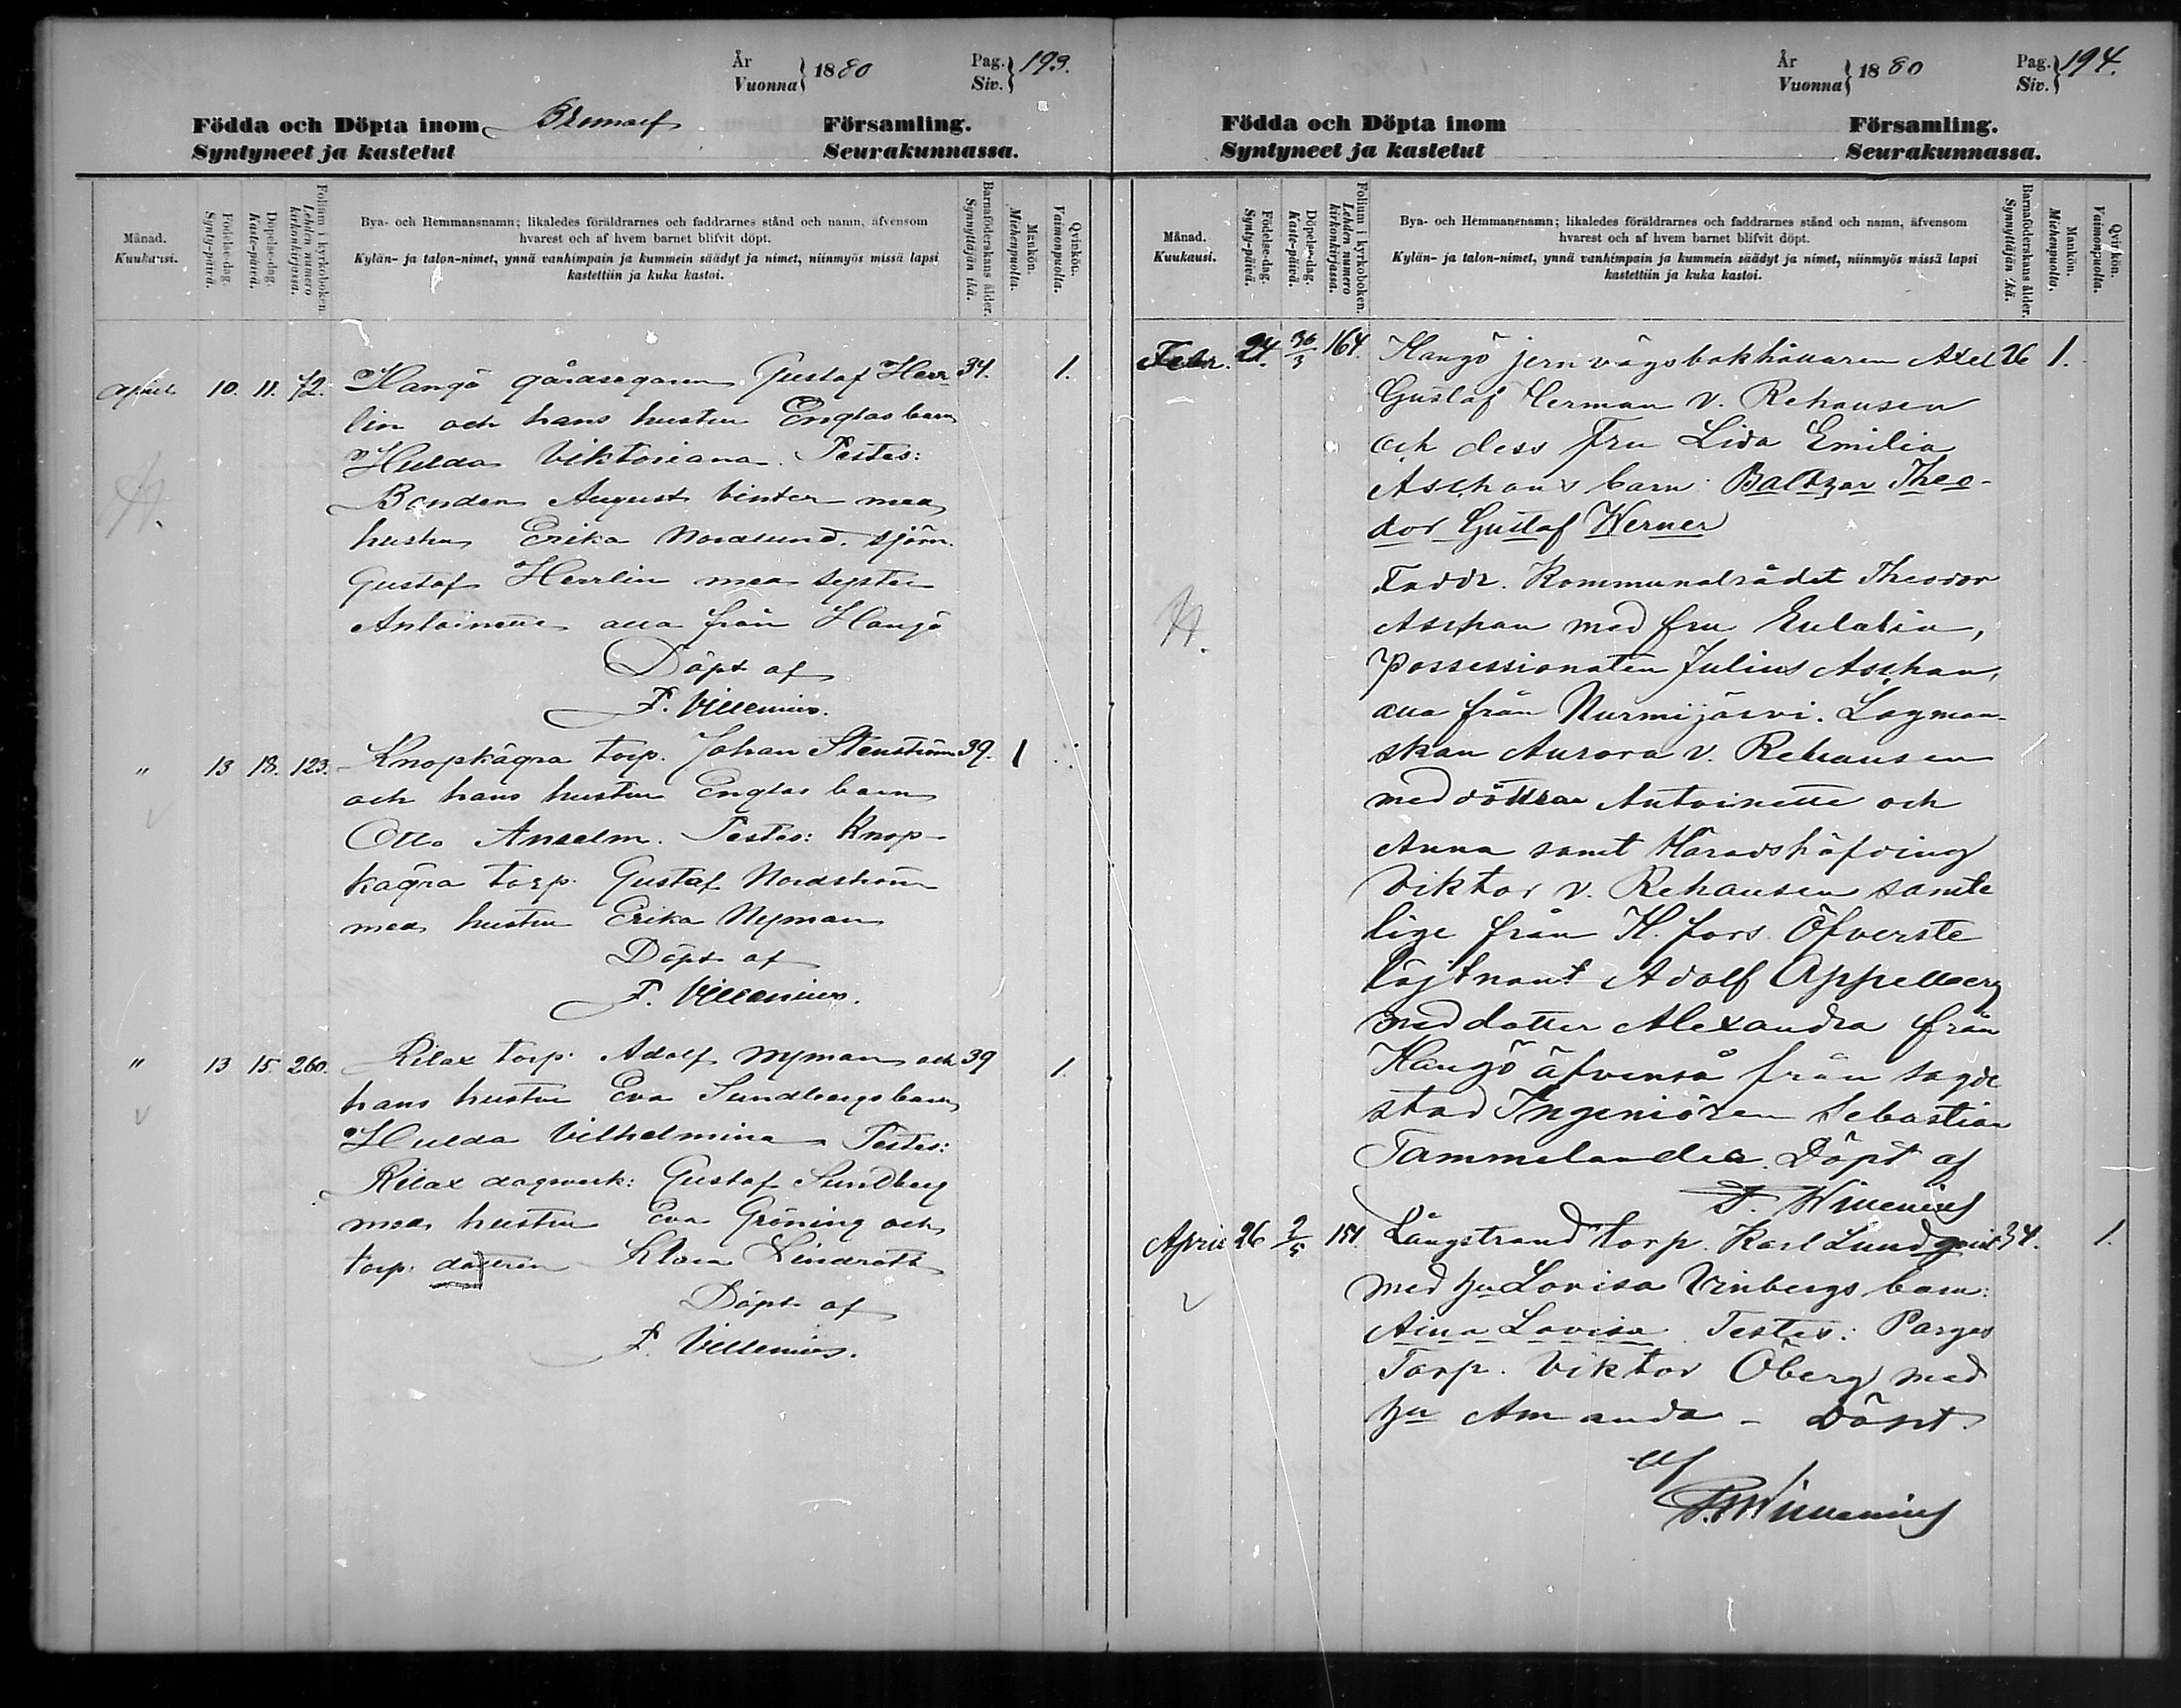 År
Vuonna } 1880
Pag.
Siv. } 193.
Födda och Döpta inom Bromarf Församling.
Syntyneet ja kastetut Seurakunnassa.
Månad.
Kuukausi.
Födelse-dag.
Synty-päivä.
Döpelse-dag.
Kaste-päivä.
Folium i kyrkoboken.
Lehden numero
kirkonkirjassa.
Bya- och Hemmansnamn; likaledes föräldrarnes och faddrarnes stånd och namn, äfvensom
hvarest och af hvem barnet blifvit döpt.
Kylän- ja talon-nimet, ynnä vanhimpain ja kummein säädyt ja nimet, niinmyös missä lapsi
kastettiin ja kuka kastoi.
Barnaföderskans ålder.
Synnyttäjän ikä.
Mankön.
Miehenpuolia.
Qvinkön.
Vaimonpuolia.
April 10. 11. 72. Hangö gårdsegaren Gustaf Herr- 34. 1.
lin och hans hustru Englas barn
Hulda Viktoriana. Testes:
Bonden August Vinter med
hustru Erika Nordlund. sjöm.
Gustaf Herrlin med syster
Antoinette alla från Hangö
Döpt af
F. Villenius.
" 13 18. 123. Knopkägra torp. Johan Stenström 39. 1
och hans hustru Englas barn
Otto Anselm. Testes: Knop-
kägra torp. Gustaf Nordström
med hustru Erika Nyman
Döpt af
F. Villenius.
" 13 15. 260. Rilax torp. Adolf Nyman och 39 1.
hans hustru Eva Sundbergs barn
Hulda Vilhelmina Testes:
Rilax dagsverk: Gustaf Sundberg
med hustru Eva Gröning och
torp. dottren Klara Lindroth
Döpt af
F. Villenius.
År
Vuonna } 1880
Pag.
Siv. } 194.
Födda och Döpta inom Församling.
Syntyneet ja kastetut Seurakunnassa.
Månad.
Kuukausi.
Födelse-dag.
Synty-päivä.
Döpelse-dag.
Kaste-päivä.
Folium i kyrkoboken.
Lehden numero
kirkonkirjassa.
Bya- och Hemmansnamn; likaledes föräldrarnes och faddrarnes stånd och namn, äfvensom
hvarest och af hvem barnet blifvit döpt.
Kylän- ja talon-nimet, ynnä vanhimpain ja kummein säädyt ja nimet, niinmyös missä lapsi
kastettiin ja kuka kastoi.
Barnaföderskans ålder.
Synnyttäjän ikä.
Mankön.
Miehenpuolia.
Qvinkön.
Vaimonpuolia.
Febr. 24. 30/3 164. Hangö jernvägsbokhållaren Axel 26 1.
Gustaf Herman v. Rehausen
och dess Fru Lida Emilia
Aschans barn Baltzar Theo-
dor Gustaf Werner
Faddr. Kommunalrådet Theodor
Aschan med fru Eulalia,
possessionaten Julius Aschan,
alla från Nurmijärvi. Lagman-
skan Aurora v. Rehausen
med döttrar Antoinette och
Anna samt Häradshöfding
Viktor v. Rehausen samte
lige från H.fors. Öfverste
löjtnant Adolf Appelberg
med dotter Alexandra från
Hangö äfvenså från sagde
stad Ingeniören Sebastian
Tammelander. Döpt af
F. Willenius
April 26 2/5 154. Långstrand torp. Karl Lundqvist 34. 1.
med hu Lovisa Vinbergs barn:
Aina Lovisa. Testes: Pargas
Torp. Viktor Öberg med
hu Amanda - Döpt
af
F. Willenius